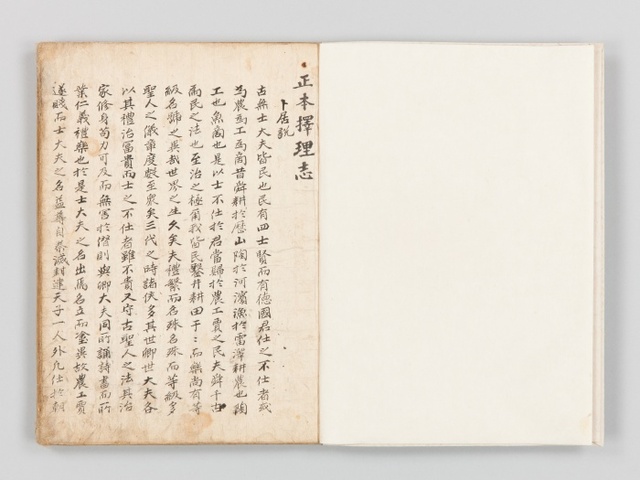 正本擇理志
卜居說
古無士大夫皆民也民有四士賢而有德國君仕之不仕者或
為農為工為商昔舜耕於歷山陶於河濱漁於雷澤耕農也陶
工也魚商也是以士不仕於君當歸於農工賈之民夫舜千古
爾民之法也至治之極爾我皆民鑿井耕田于〻而樂尚有等
級名號之異哉世界之生久矣夫禮繁而名殊名殊而等級多
聖人之儀章度數至衆矣三代之時諸侯多其世卿世大夫各
以其禮治富貴而士之不仕者雖不貴又守古聖人之法其治
家修身苟力可及而無害於僭則與卿大夫同所誦詩書而所
業仁義禮樂也於是士大夫之名出焉名立而塗異故農工賈
遂賤而士大夫之名益尊自秦滅封建天子一人外凡仕於朝